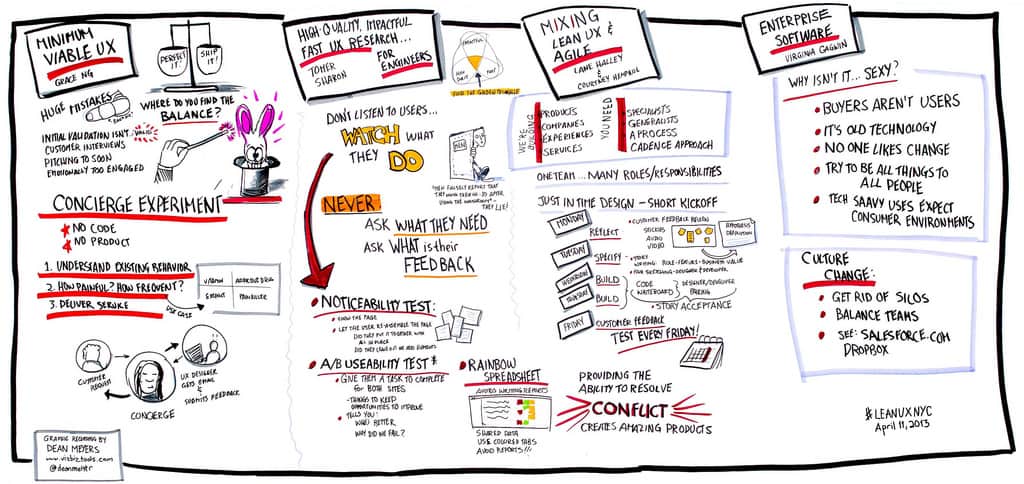 MINIMUM
VIABLE UX
GRACE NG
PERFECT
IT!
SHIP
IT!
HUGE MISTAKES
WHERE DO YOU FIND THE
BALANCE?
INITIAL VALIDATION ISN'T VALID
CUSTOMER INTERVIEWS
PITCHING TO SOON
EMOTIONALLY TOO ENGAGED
CONCIERGE EXPERIMENT
NO CODE
NO PRODUCT
1. UNDERSTAND EXISTING BEHAVIOR
2. HOW PAINFUL? HOW FREQUENT?
3. DELIVER SERVICE
USE CASE
VITAMIN
ADDICTIVE DRUG
PAINKILLER
CUSTOMER
REQUEST
UX DESIGNER
GETS EMAIL
&
SUBMITS FEEDBACK
CONCIERGE
GRAPHIC RECORDING BY
DEAN MEYERS
www.vizbiztools.com
@deanmeistr
HIGH-QUALITY, IMPACTFUL
FAST UX RESEARCH...
FOR
ENGINEERS
TOMER
SHARON
IMPACTFUL
FAST
FIND THE GOLDEN TRIANGLE
DON'T LISTEN TO USERS...
WATCH WHAT
THEY DO
MEN
THEY LIE!
NEVER
ASK WHAT THEY NEED
ASK WHAT is their
FEEDBACK
NOTICEABILITY TEST:
SHOW THE PAGE
LET THE USER RE-ASSEMBLE THE PAGE
DID THEY PUT IT TOGETHER WITH
ALL IN PLACE
DID THEY LEAVE OUT OR ADD ELEMENTS
A/B USEABILITY TEST *
GIVE THEM A TASK TO COMPLETE
for BOTH SITES
-THINGS TO KEEP
OPPORTUNITIES TO IMPROVE
TELLS YOU:
WHO'S BETTER,
WHY DID WE FAIL?
RAINBOW
SPREADSHEET
AVOIDS WRITING REPORTS
SHARED DATA
USE COLORED TABS
AVOID REPORTS!!!
MIXING
LEAN UX &
AGILE
LANE HALLEY
&
COURTNEY HEMPHILL
WE'RE BUILDING
PRODUCTS
COMPANIES
EXPERIENCES
SERVICES
YOU NEED
SPECIALISTS
GENERALISTS
A PROCESS
CADENCE APPROACH
ONE TEAM... MANY ROLES/RESPONSIBILITIES
JUST IN TIME DESIGN - SHORT KICKOFF
MONDAY
REFLECT
CUSTOMER FEEDBACK REVIEW
STICKIES
AUDIO
VIDEO
A PROGRESS
DEFINITION
TUESDAY
SPECIFY
STORY
WRITING: ROLE-FEATURE-BUSINESS VALUE
PAIR SKETCHING-DESIGNER & DEVELOPER
WEDNESDAY
BUILD
THURSDAY
BUILD
CODE
WHITEBOARD
DESIGNER/DEVELOPER
PAIRING
STORY ACCEPTANCE
FRIDAY
CUSTOMER FEEDBACK
TEST EVERY FRIDAY!
PROVIDING THE
ABILITY TO RESOLVE
CONFLICT
CREATES AMAZING PRODUCTS
ENTERPRISE
SOFTWARE
VIRGINIA CAGWIN
WHY ISN'T IT... SEXY?
BUYERS AREN'T USERS
IT'S OLD TECHNOLOGY
NO ONE LIKES CHANGE
TRY TO BE ALL THINGS TO
ALL PEOPLE
TECH SAAVY USES EXPECT
CONSUMER ENVIRONMENTS
CULTURE
CHANGE:
GET RID OF SILOS
BALANCE TEAMS
SEE: SALESFORCE.COM
DROPBOX
#LEANUXNYC
April 11, 2013